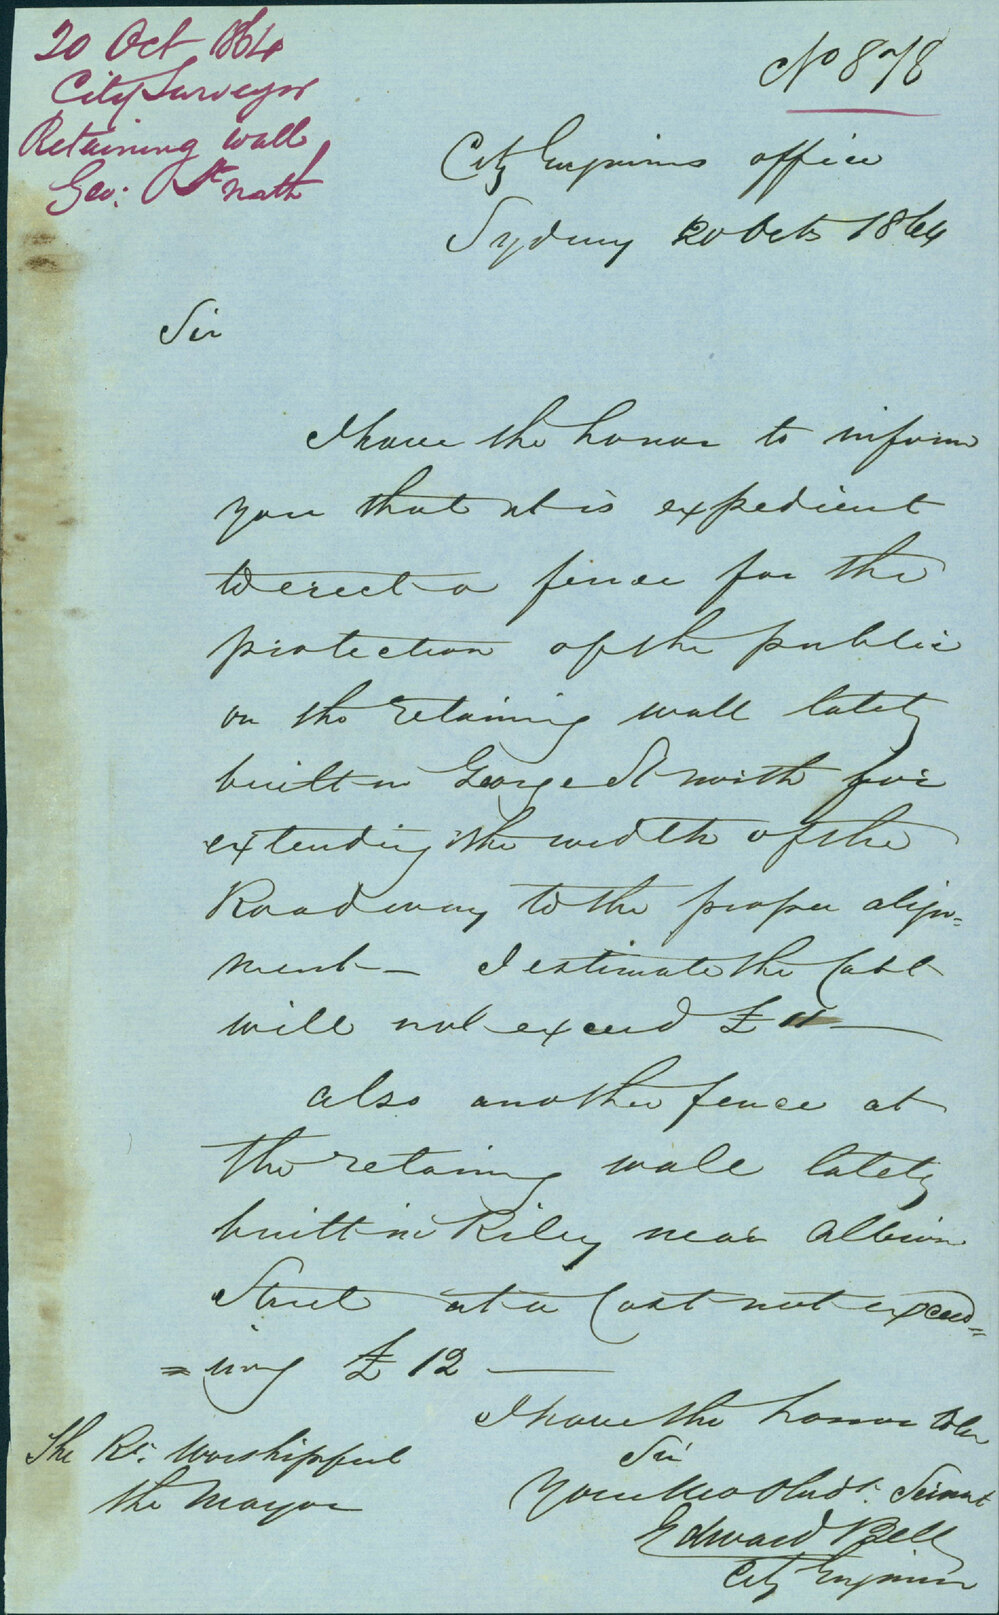 20 Oct 1864
City Surveyor
Retaining wall
Geo: St north
No 878
City Engineers office
Sydney 20 Octr 1864
Sir
I have the honor to inform
you that it is expedient
to erect a fence for the
protection of the public
on the retaining wall lately
built in George St north for
extending the width of the
Roadway to the proper align=
ment – I estimate the Cost
will not exceed £11 —
also another fence at
the retaining wall lately
built in Riley near Albion
Street at a Cost not exceed=
=ing £12 —
I have the honor to be
Sir
Your Mo Obdt. Servant
Edward Bell
City Engineer
The Rt. Worshipful
the Mayor